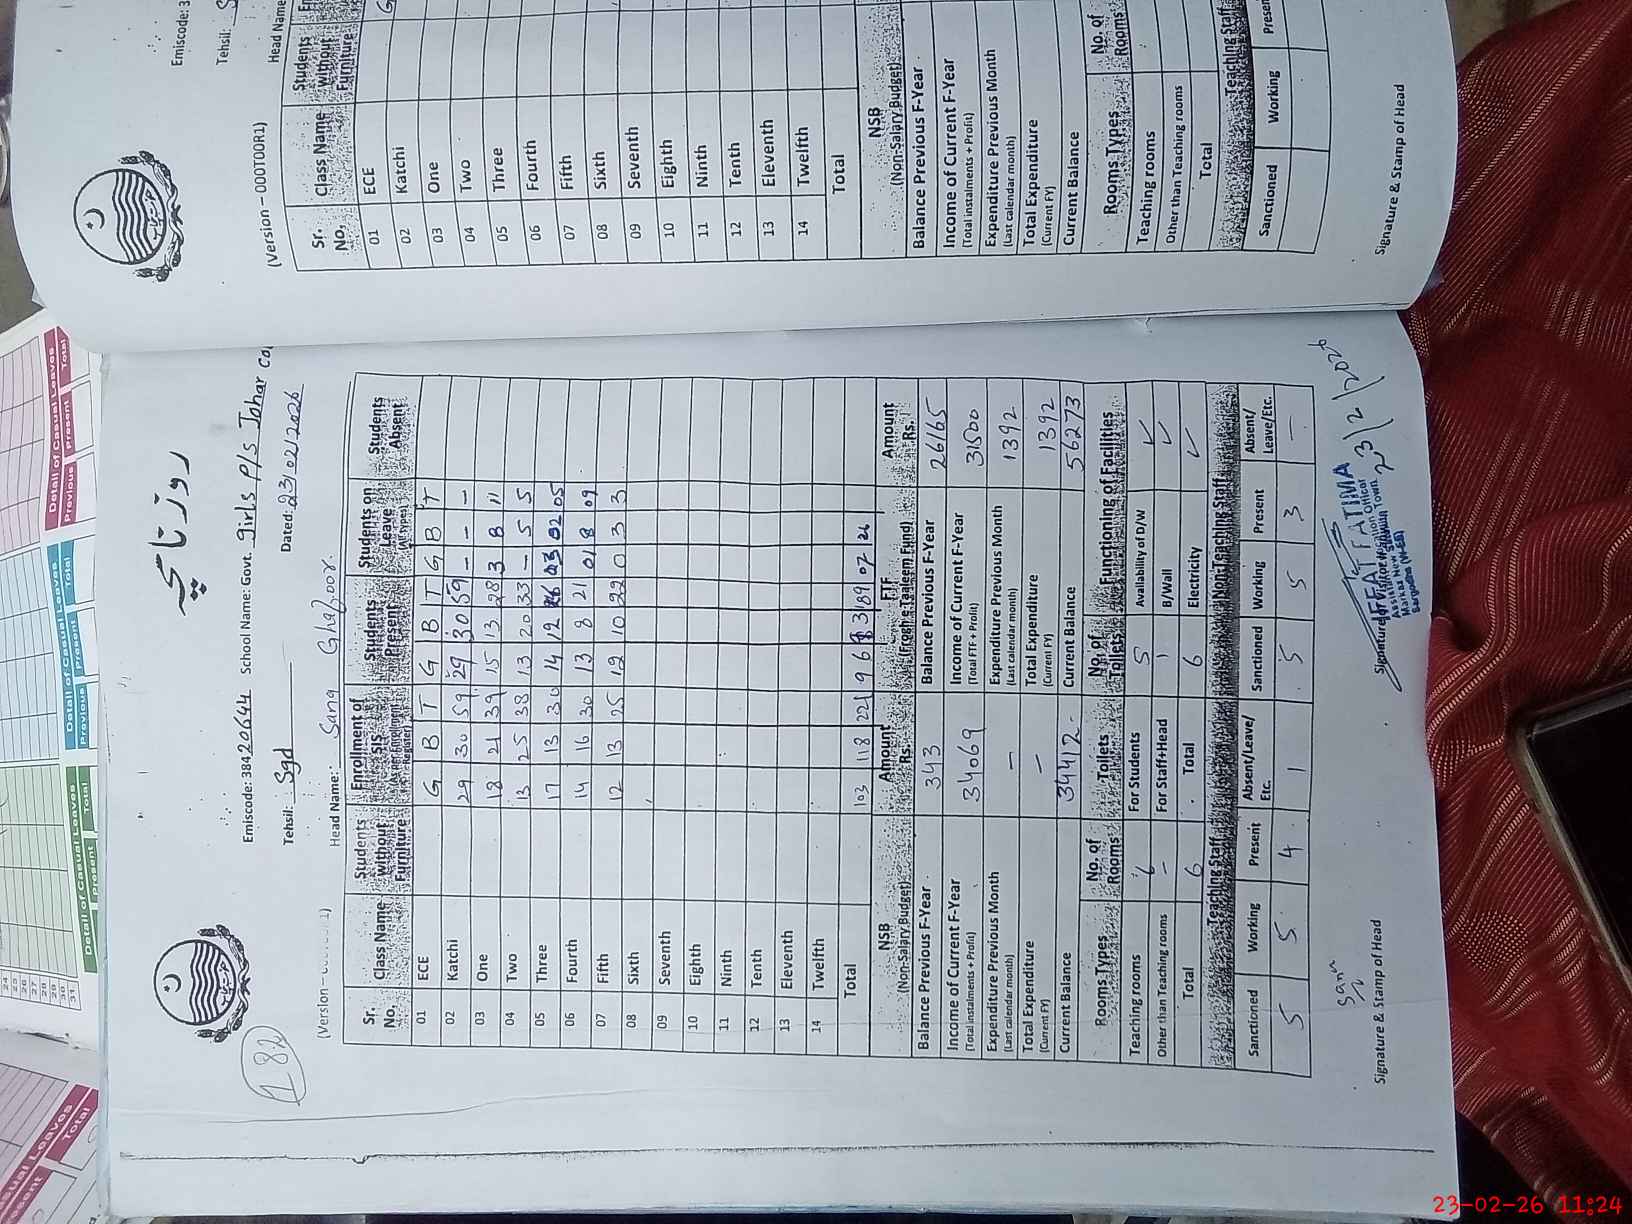 روزنامچہ
182
Emiscode: 38420644 School Name: Govt. girls P/S Johar
Tehsil: Sgd Dated: 23/02/2026
Head Name: Sana Ghafoor
Sr. No. Class Name Students without Furniture Enrollment of SIS (As per Enrollment Register) Students Present Students on Leave (All types) Students Absent
G B T G B T G B T
01 ECE
02 Katchi 29 30 59 29 30 59 - - -
03 One 18 21 39 15 13 28 3 8 11
04 Two 13 25 38 13 20 33 - 5 5
05 Three 17 13 30 14 12 26 03 02 05
06 Fourth 14 16 30 13 8 21 01 8 09
07 Fifth 12 13 25 12 10 22 0 3 3
08 Sixth
09 Seventh
10 Eighth
11 Ninth
12 Tenth
13 Eleventh
14 Twelfth
Total 103 118 221 96 93 189 07 26
NSB (Non-Salary Budget) Amount Rs. FTF (Frogh-e-Taaleem Fund) Amount Rs.
Balance Previous F-Year 343 Balance Previous F-Year 26165
Income of Current F-Year 34069 Income of Current F-Year 31500
(Total instalments + Profit) (Total FTF + Profit)
Expenditure Previous Month - Expenditure Previous Month 1392
(Last calendar month) (Last calendar month)
Total Expenditure - Total Expenditure 1392
(Current FY) (Current FY)
Current Balance 34412 Current Balance 56273
Rooms Types No. of Rooms Toilets No. of Toilets Functioning of Facilities
Teaching rooms 6 For Students 5 Availability of D/W ✓
Other than Teaching rooms - For Staff+Head 1 B/Wall ✓
Total 6 Total 6 Electricity ✓
Teaching Staff Non-Teaching Staff
Sanctioned Working Present Absent/Leave/Etc. Sanctioned Working Present Absent/Leave/Etc.
5 5 4 1 5 5 3 -
Sana
23/2/2026
Signature & Stamp of Head
IFFAT FATIMA
Assistant Education Officer
Sargodha (W-EE)
(Version – 000T00R1)
Emiscode: 3
Tehsil:
Head Name
Sr. No. Class Name Students without Furniture
01 ECE
02 Katchi
03 One
04 Two
05 Three
06 Fourth
07 Fifth
08 Sixth
09 Seventh
10 Eighth
11 Ninth
12 Tenth
13 Eleventh
14 Twelfth
Total
NSB
(Non-Salary Budget)
Balance Previous F-Year
Income of Current F-Year
(Total instalments + Profit)
Expenditure Previous Month
(Last calendar month)
Total Expenditure
(Current FY)
Current Balance
Rooms Types No. of Rooms
Teaching rooms
Other than Teaching rooms
Total
Teaching Staff
Sanctioned Working Presen
Signature & Stamp of Head
Detail of Casual Leaves
Previous Present Total
Detail of Casual Leaves
Previous Present Total
Detail of Casual Leaves
Present Total
24
25
26
27
28
29
30
31
23-02-26 11:24